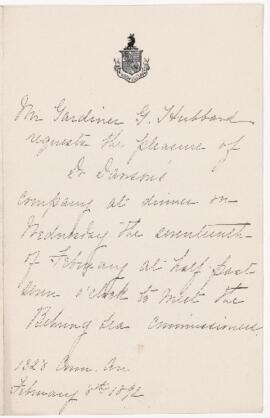 Mr Gardiner G. Hubbard
requests the pleasure of
Dr Dawson's
company at dinner on
Wednesday the seventeenth
of February at half past
seven o'clock to meet the
Behring Sea Commissioners.
1328 Conn. Av.
February 8th 1892